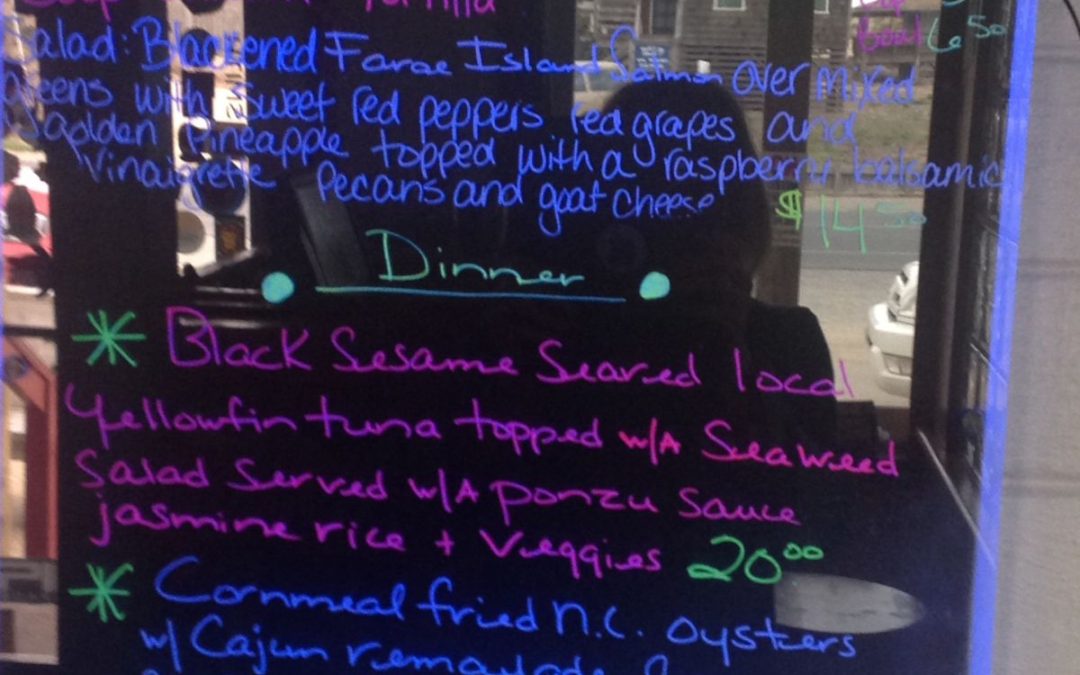 Tortilla
bowl 6 50
Salad: Blackened Faroe Island Salmon over mixed
greens with sweet red peppers red grapes and
pineapple topped with a raspberry balsamic
vinaigrette pecans and goat cheese $14 50
Dinner
* Black Sesame Seared local
Yellowfin tuna topped w/A Seaweed
Salad Served w/A ponzu Sauce
jasmine rice + Veggies 20 00
* Cornmeal fried N.C. oysters
w/ Cajun